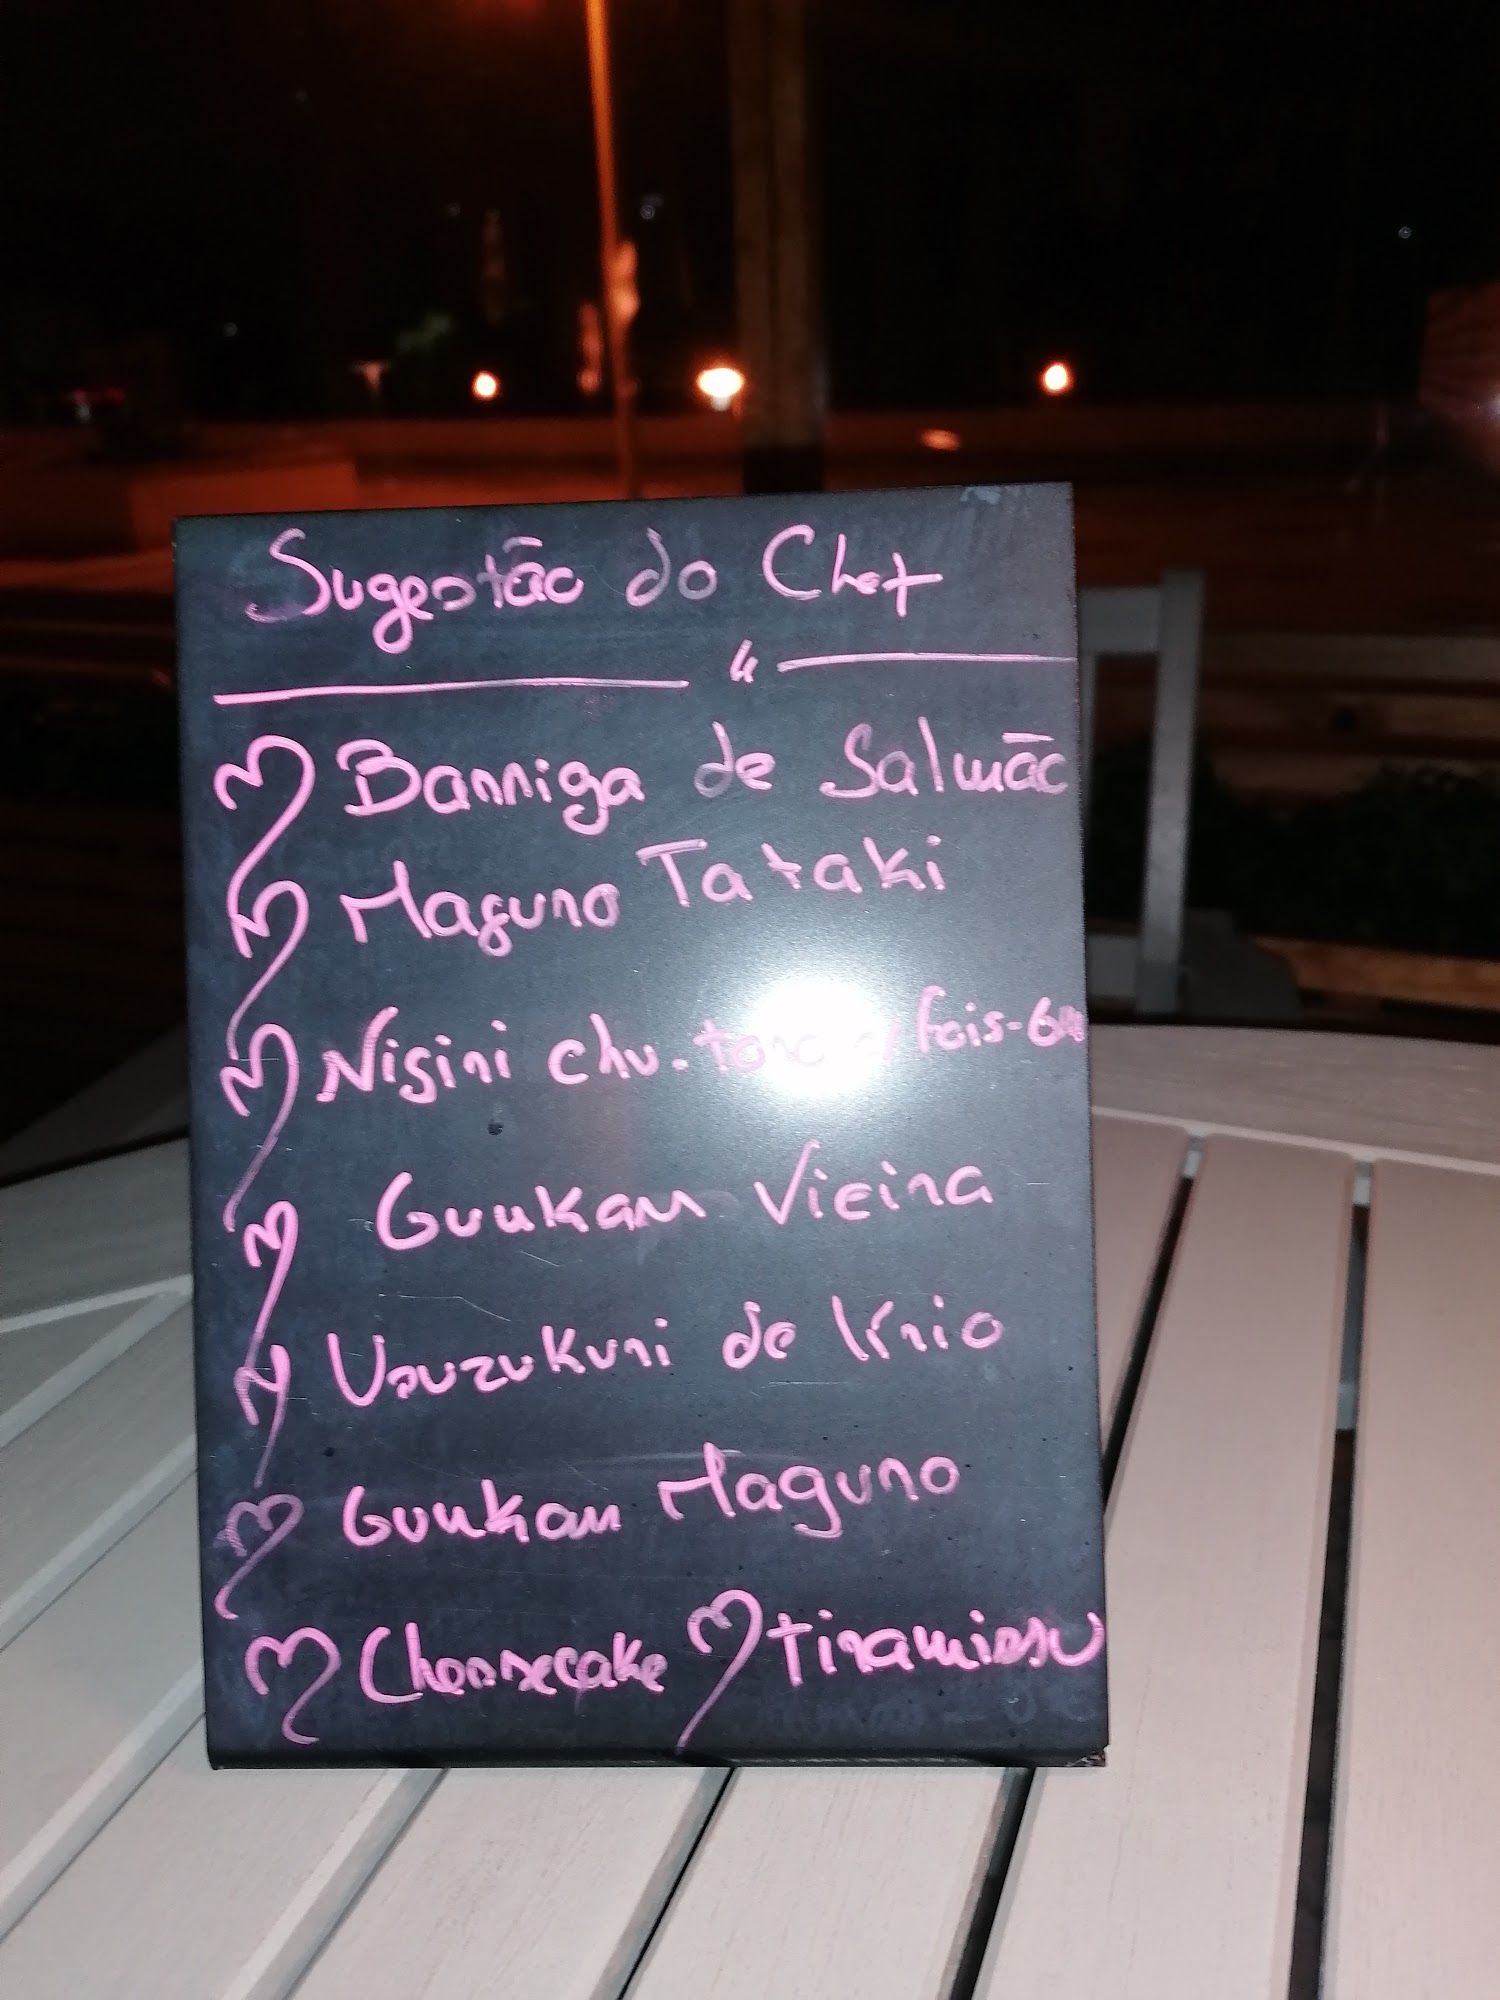 Sugestão do Chef
"
Barriga de Salmão
Maguro Tataki
Nigiri chu-toro fois-Gra
Guukam Vieira
Usuzukuri de lírio
Guukam Maguro
Cheesecake tiramissu